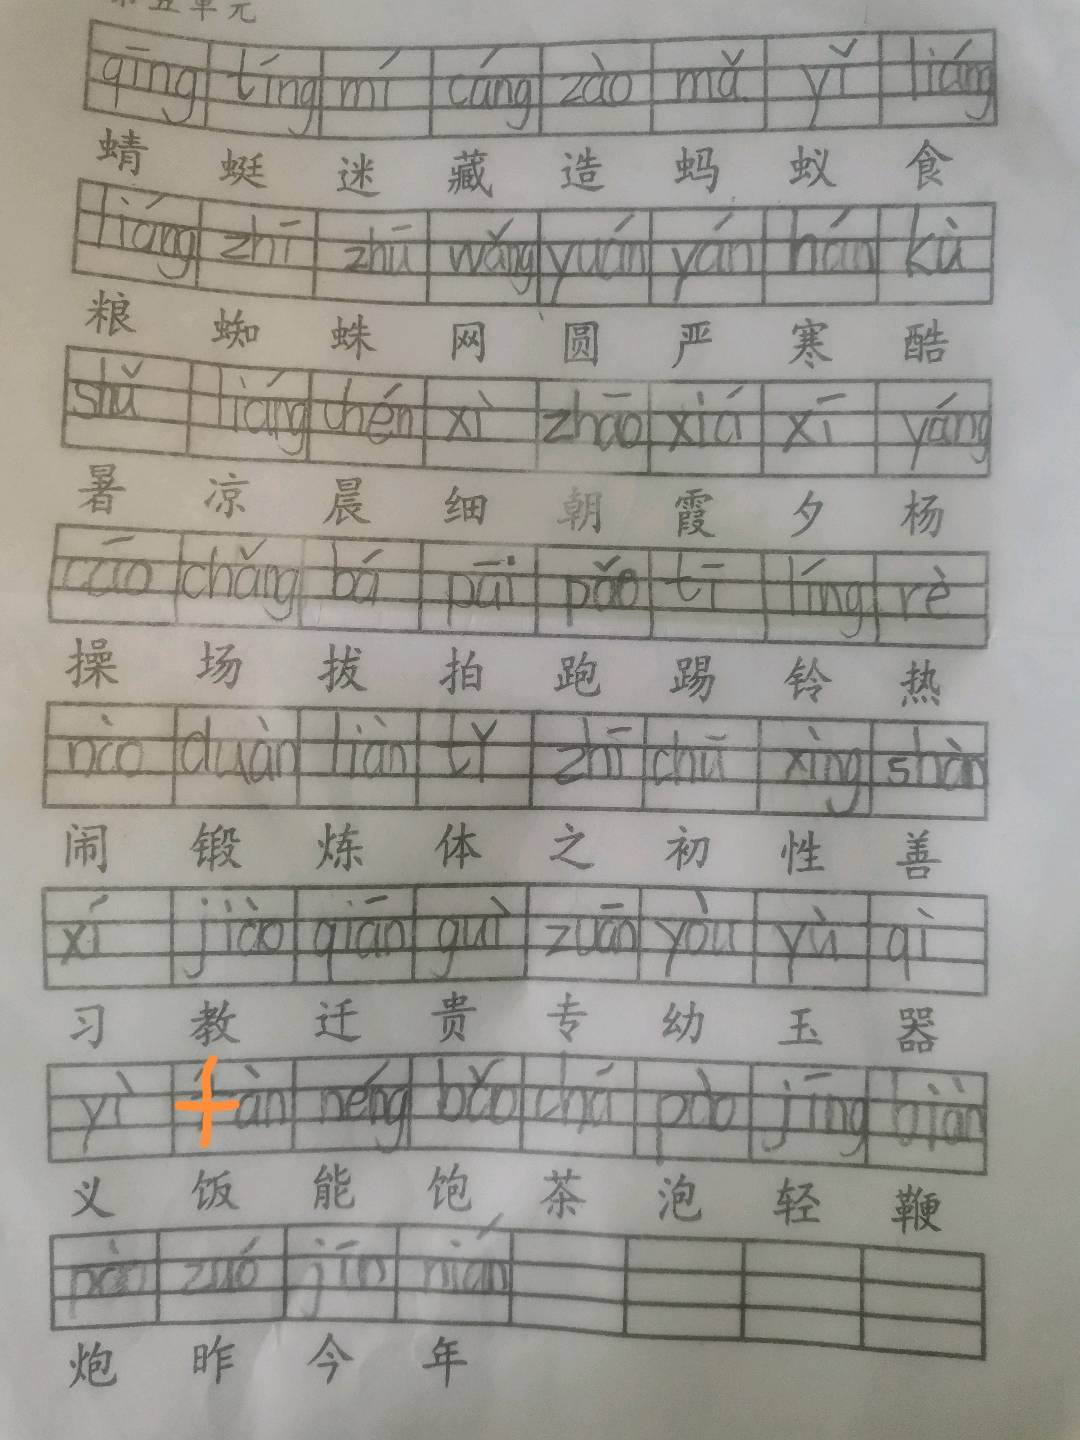 第五单元
qīng tíng mí cáng zào mǎ yǐ liáng
蜻 蜓 迷 藏 造 蚂 蚁 食
liáng zhī zhū wǎng yuán yán hán kù
粮 蜘 蛛 网 圆 严 寒 酷
shǔ liáng chén xì zhāo xiá xī yáng
暑 凉 晨 细 朝 霞 夕 杨
cāo chǎng bá pāi pǎo tī líng rè
操 场 拔 拍 跑 踢 铃 热
nào duàn liàn tǐ zhī chū xìng shàn
闹 锻 炼 体 之 初 性 善
xí jiào qiān guì zuān yòu yù qì
习 教 迁 贵 专 幼 玉 器
yì fàn néng bǎo chá pào jīng biàn
义 饭 能 饱 茶 泡 轻 鞭
pào zuó jīn nián
炮 昨 今 年